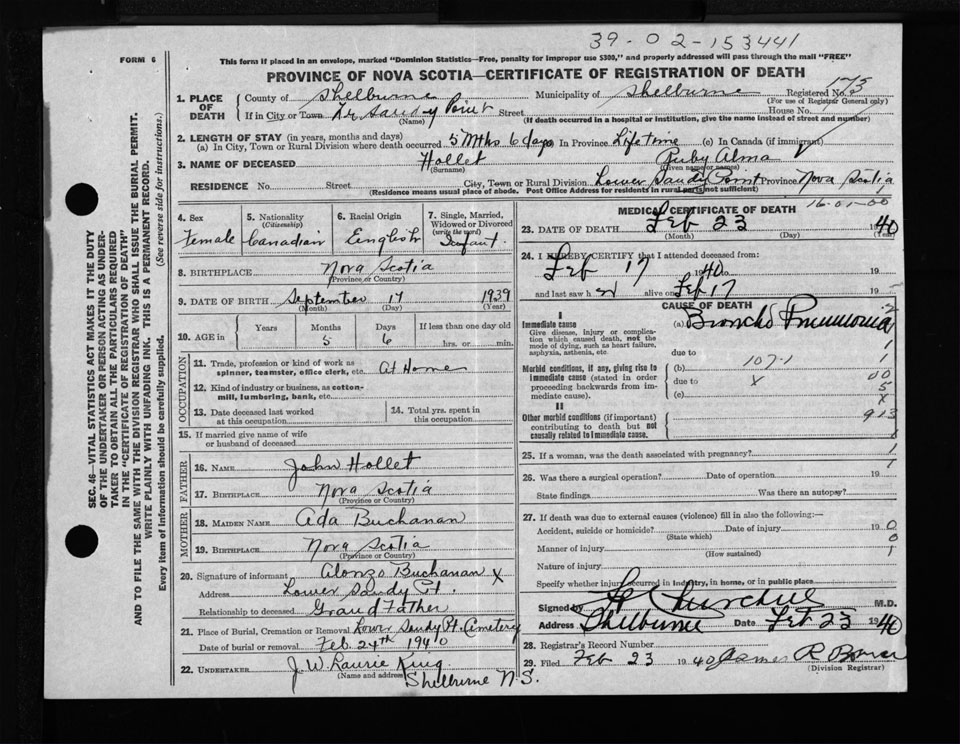 39-02-153441
FORM 6
This form if placed in an envelope, marked "Dominion Statistics—Free, penalty for improper use $300," and properly addressed will pass through the mail "FREE"
PROVINCE OF NOVA SCOTIA—CERTIFICATE OF REGISTRATION OF DEATH
SEC. 46—VITAL STATISTICS ACT MAKES IT THE DUTY
OF THE UNDERTAKER OR PERSON ACTING AS UNDER-
TAKER TO OBTAIN ALL THE PARTICULARS REQUIRED
IN THE "CERTIFICATE OF REGISTRATION OF DEATH"
AND TO FILE THE SAME WITH THE DIVISION REGISTRAR WHO SHALL ISSUE THE BURIAL PERMIT.
WRITE PLAINLY WITH UNFADING INK. THIS IS A PERMANENT RECORD.
Every item of information should be carefully supplied. (See reverse side for instructions.)
1. PLACE OF DEATH County of Shelburne Municipality of Shelburne Registered No. 175
(For use of Registrar General only)
If in City or Town Lr. Sandy Point Street House No.
(Name) (If death occurred in a hospital or institution, give the name instead of street and number)
2. LENGTH OF STAY (in years, months and days)
(a) In City, Town or Rural Division where death occurred 5 Mths 6 days In Province Lifetime (c) In Canada (if immigrant)
3. NAME OF DECEASED Hollet Ruby Alma
(Surname) (Given name or names)
RESIDENCE No. Street City, Town or Rural Division Lower Sandy Point Province Nova Scotia
(Residence means usual place of abode. Post Office Address for residents in rural parts not sufficient)
16-01-00
4. Sex Female
5. Nationality (Citizenship) Canadian
6. Racial Origin English
7. Single, Married, Widowed or Divorced (write the word) Infant.
8. BIRTHPLACE Nova Scotia
(Province or Country)
9. DATE OF BIRTH September 17 1939
(Month) (Day) (Year)
10. AGE in Years Months Days If less than one day old
5 6 hrs. or min.
OCCUPATION
11. Trade, profession or kind of work as spinner, teamster, office clerk, etc. At Home
12. Kind of industry or business, as cotton-mill, lumbering, bank, etc.
13. Date deceased last worked at this occupation
14. Total yrs. spent in this occupation
15. If married give name of wife or husband of deceased
FATHER
16. NAME John Hollet
17. BIRTHPLACE Nova Scotia
(Province or Country)
MOTHER
18. MAIDEN NAME Ada Buchanan
19. BIRTHPLACE Nova Scotia
(Province or Country)
20. Signature of informant Alonzo Buchanan X
Address Lower Sandy Pt.
Relationship to deceased Grand Father
21. Place of Burial, Cremation or Removal Lower Sandy Pt. Cemetery
Date of burial or removal Feb. 24th 1940
22. UNDERTAKER J. W. Laurie King
(Name and address) Shelburne N.S.
MEDICAL CERTIFICATE OF DEATH
23. DATE OF DEATH Feb 23 1940
(Month) (Day) (Year)
24. I HEREBY CERTIFY that I attended deceased from:
Feb 17 1940 19
and last saw h er alive on Feb 17 19
CAUSE OF DEATH
I
Immediate cause
Give disease, injury or complication which caused death, not the mode of dying, such as heart failure, asphyxia, asthenia, etc.
(a) Broncho Pneumonia
due to
Morbid conditions, if any, giving rise to immediate cause (stated in order proceeding backwards from immediate cause).
(b) 107-1
due to X
(c)
II
Other morbid conditions (if important) contributing to death but not causally related to immediate cause.
2
1
1
00
5
X
913
25. If a woman, was the death associated with pregnancy?
26. Was there a surgical operation? Date of operation 19
State findings Was there an autopsy?
27. If death was due to external causes (violence) fill in also the following:—
Accident, suicide or homicide? Date of injury 19 0
(State which) 0
Manner of injury 1
(How sustained)
Nature of injury
Specify whether injury occurred in industry, in home, or in public place
Signed by Churchill M.D.
Address Shelburne Date Feb 23 1940
28. Registrar's Record Number
29. Filed Feb 23 1940 James R Bower
(Division Registrar)